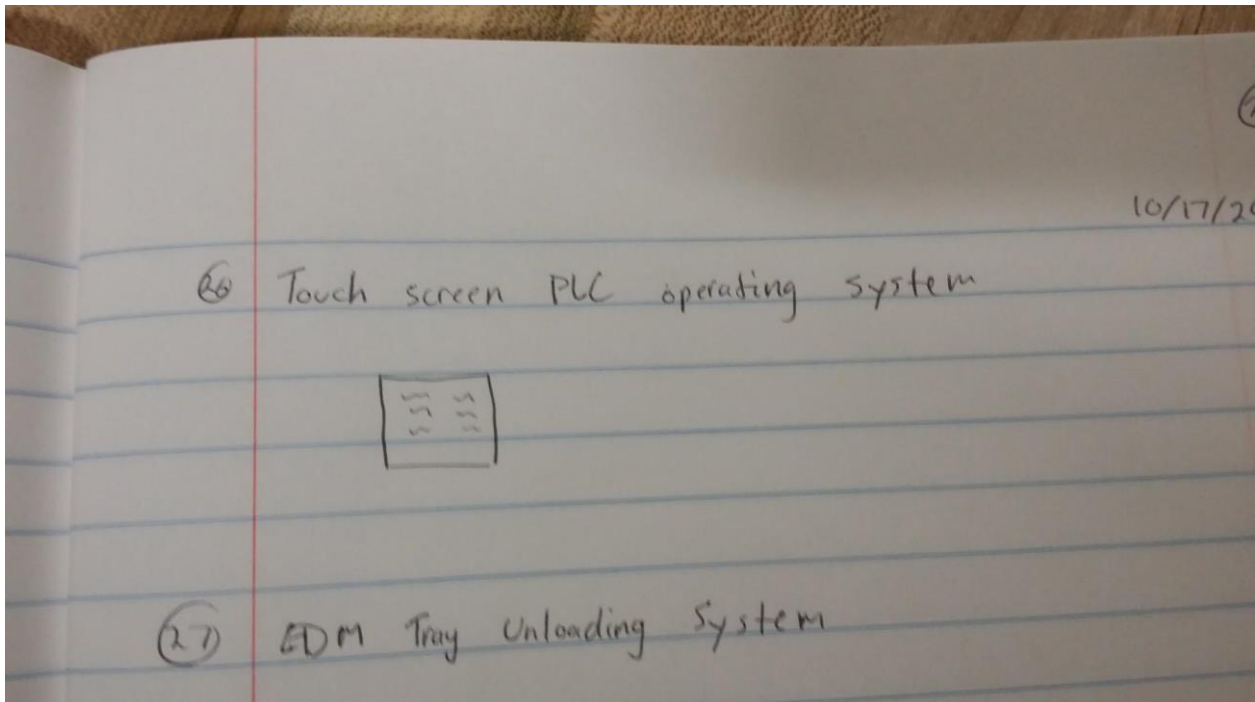 10/17/20
26 Touch screen PLC operating system
27 EDM Tray Unloading System